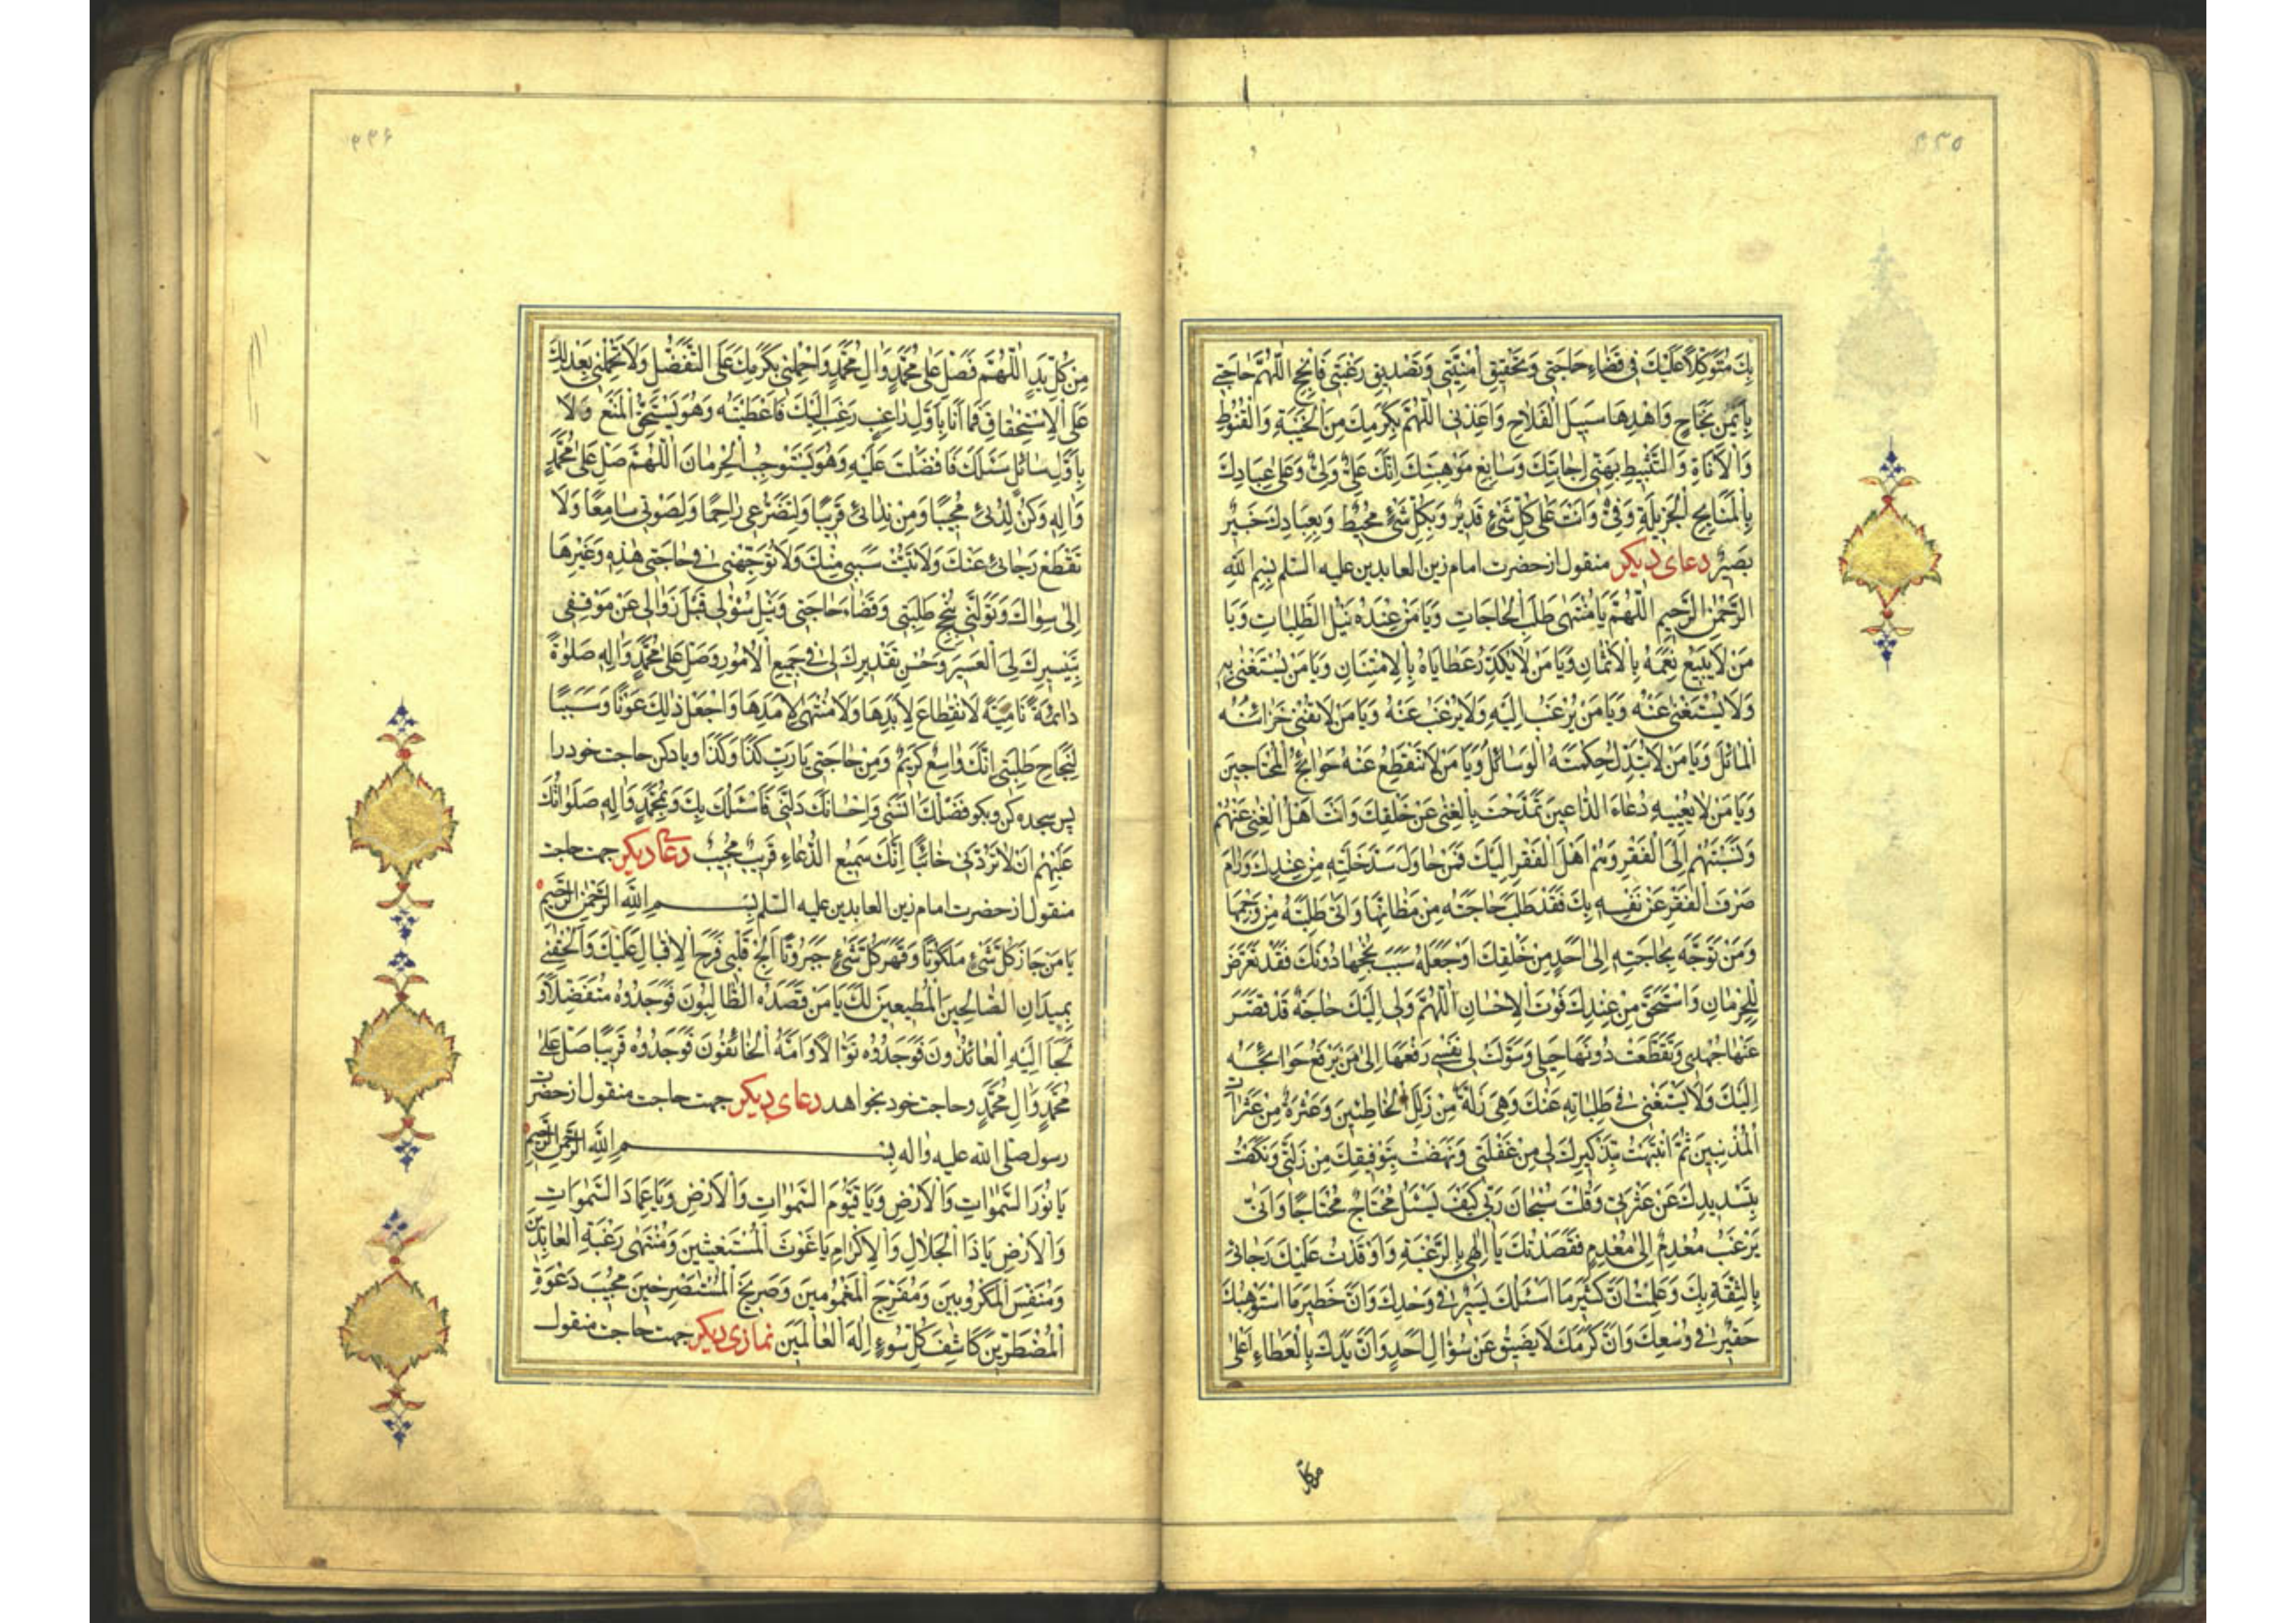 ٣٣٥
بِكَ مُتَوَكِّلاً عَلَيْكَ فى قَضاءِ حَاجَتى وَتَحْقيقِ اُمْنِيَّتى وَتَصْديقِ رَغْبَتى فَاَنْجِحِ اللّٰهُمَّ حاجَتى
بِاَيْمَنِ نَجَاحٍ وَاهْدِهَا سَبيلَ الْفَلاحِ وَاَعِذْنى اللّٰهُمَّ بِكَرَمِكَ مِنَ الْخَيْبَةِ وَالْقُنُوطِ
وَالْاَناةِ وَالتَّثْبيطِ بِهَنئِ اِجابَتِكَ وَسَابِغِ مَوْهِبَتِكَ اِنَّكَ عَلِىٌّ وَلِىٌّ وَعَلى عِبَادِكَ
بِالْمَنَايِحِ الْجَزيلَةِ وَفِىٌّ وَاَنْتَ عَلى كُلِّ شَىْءٍ قَديرٌ وَبِكُلِّ شَىْءٍ مُحيطٌ وَبِعِبَادِكَ خَبيرٌ
بَصيرٌ دعاى ديكر منقول از حضرت امام زين العابدين عليه السّلم بِسْمِ اللهِ
الرَّحْمٰنِ الرَّحيمِ اَللّٰهُمَّ يَا مُنْتَهى طَلَبِ الْحَاجَاتِ وَيَا مَنْ عِنْدَهُ نَيْلُ الطَّلِباتِ وَيَا
مَنْ لَا يَبيعُ نِعَمَهُ بِالْاَثْمانِ وَيَا مَنْ لَا يُكَدِّرُ عَطَايَاهُ بِالْاِمْتِنَانِ وَيَا مَنْ يُسْتَغْنى بِهِ
وَلَا يُسْتَغْنى عَنْهُ وَيَا مَنْ يُرْغَبُ اِلَيْهِ وَلَا يُرْغَبُ عَنْهُ وَيَا مَنْ لَا تُفْنى خَزَائِنَهُ
الْمَسَائِلُ وَيَا مَنْ لَا تُبَدِّلُ حِكْمَتَهُ الْوَسَائِلُ وَيَا مَنْ لَا تَنْقَطِعُ عَنْهُ حَوَائِجُ الْمُحْتَاجينَ
وَيَا مَنْ لَا يُعَنّيهِ دُعَاءُ الدَّاعينَ تَمَدَّحْتَ بِالْغِنى عَنْ خَلْقِكَ وَاَنْتَ اَهْلُ الْغِنى عَنْهُمْ
وَنَسَبْتَهُمْ اِلَى الْفَقْرِ وَهُمْ اَهْلُ الْفَقْرِ اِلَيْكَ فَمَنْ حَاوَلَ سَدَّ خَلَّتِهِ مِنْ عِنْدِكَ وَرَامَ
صَرْفَ الْفَقْرِ عَنْ نَفْسِهِ بِكَ فَقَدْ طَلَبَ حَاجَتَهُ مِنْ مَظَانِّهَا وَاَتى طَلِبَتَهُ مِنْ وَجْهِهَا
وَمَنْ تَوَجَّهَ بِحَاجَتِهِ اِلى اَحَدٍ مِنْ خَلْقِكَ اَوْ جَعَلَهُ سَبَبَ نُجْحِهَا دُونَكَ فَقَدْ تَعَرَّضَ
لِلْحِرْمَانِ وَاسْتَحَقَّ مِنْ عِنْدِكَ فَوْتَ الْاِحْسَانِ اَللّٰهُمَّ وَلى اِلَيْكَ حَاجَةٌ قَدْ قَصَّرَ
عَنْهَا جُهْدى وَتَقَطَّعَتْ دُونَهَا حِيَلى وَسَوَّلَتْ لى نَفْسى رَفْعَهَا اِلى مَنْ يَرْفَعُ حَوَائِجَهُ
اِلَيْكَ وَلَا يَسْتَغْنى فى طَلِبَاتِهِ عَنْكَ وَهِىَ زَلَّةٌ مِنْ زَلَلِ الْخَاطِئينَ وَعَثْرَةٌ مِنْ عَثَرَاتِ
الْمُذْنِبينَ ثُمَّ انْتَبَهْتُ بِتَذْكيرِكَ لى مِنْ غَفْلَتى وَنَهَضْتُ بِتَوْفيقِكَ مِنْ زَلَّتى وَنَكَصْتُ
بِتَسْديدِكَ عَنْ عَثْرَتى وَقُلْتُ سُبْحَانَ رَبّى كَيْفَ يَسْئَلُ مُحْتَاجٌ مُحْتَاجًا وَاَنّى
يَرْغَبُ مُعْدِمٌ اِلى مُعْدِمٍ فَقَصَدْتُكَ يَا اِلٰهى بِالرَّغْبَةِ وَاَوْفَدْتُ عَلَيْكَ رَجَائى
بِالثِّقَةِ بِكَ وَعَلِمْتُ اَنَّ كَثيرَ مَا اَسْئَلُكَ يَسيرٌ فى وُجْدِكَ وَاَنَّ خَطيرَ مَا اَسْتَوْهِبُكَ
حَقيرٌ فى وُسْعِكَ وَاَنَّ كَرَمَكَ لَا يَضيقُ عَنْ سُؤَالِ اَحَدٍ وَاَنَّ يَدَكَ بِالْعَطَاءِ اَعْلى
من كل
٣٣۶
مِنْ كُلِّ يَدٍ اَللّٰهُمَّ فَصَلِّ عَلى مُحَمَّدٍ وَالِ مُحَمَّدٍ وَاحْمِلْنى بِكَرَمِكَ عَلَى التَّفَضُّلِ وَلَا تَحْمِلْنى بِعَدْلِكَ
عَلَى الْاِسْتِحْقَاقِ فَمَا اَنَا بِاَوَّلِ رَاغِبٍ رَغِبَ اِلَيْكَ فَاَعْطَيْتَهُ وَهُوَ يَسْتَحِقُّ الْمَنْعَ وَلَا
بِاَوَّلِ سَائِلٍ سَئَلَكَ فَاَفْضَلْتَ عَلَيْهِ وَهُوَ يَسْتَوْجِبُ الْحِرْمَانَ اَللّٰهُمَّ صَلِّ عَلى مُحَمَّدٍ
وَالِهِ وَكُنْ لِدُعَائى مُجيبًا وَمِنْ نِدَائى قَريبًا وَلِتَضَرُّعى رَاحِمًا وَلِصَوْتى سَامِعًا وَلَا
تَقْطَعْ رَجَائى عَنْكَ وَلَا تَبُتَّ سَبَبى مِنْكَ وَلَا تُوَجِّهْنى فى حَاجَتى هٰذِهِ وَغَيْرِهَا
اِلى سِوَاكَ وَتَوَلَّنى بِنُجْحِ طَلِبَتى وَقَضَاءِ حَاجَتى وَنَيْلِ سُؤْلى قَبْلَ زَوَالى عَنْ مَوْقِفى
بِتَيْسيرِكَ لِىَ الْعَسيرَ وَحُسْنِ تَقْديرِكَ لى فى جَميعِ الْاُمُورِ وَصَلِّ عَلى مُحَمَّدٍ وَالِهِ صَلٰوةً
دَائِمَةً نَامِيَةً لَا انْقِطَاعَ لِاَبَدِهَا وَلَا مُنْتَهى لِاَمَدِهَا وَاجْعَلْ ذٰلِكَ عَوْنًا وَسَبَبًا
لِنَجَاحِ طَلِبَتى اِنَّكَ وَاسِعٌ كَريمٌ وَمِنْ حَاجَتى يَا رَبِّ كَذَا وَكَذَا وياد كن حاجت خود را
پس سجده كن وبكو فَضْلُكَ انَسَنى وَاِحْسَانُكَ دَلَّنى فَاَسْئَلُكَ بِكَ وَبِمُحَمَّدٍ وَالِهِ صَلَوَاتُكَ
عَلَيْهِمْ اَنْ لَا تَرُدَّنى خَائِبًا اِنَّكَ سَميعُ الدُّعَاءِ قَريبٌ مُجيبٌ دعاى ديكر جهت حاجت
منقول از حضرت امام زين العابدين عليه السّلم بِسْمِ اللهِ الرَّحْمٰنِ الرَّحيمِ
يَا مَنْ حَازَ كُلَّ شَىْءٍ مَلَكُوتًا وَقَهَرَ كُلَّ شَىْءٍ جَبَرُوتًا اَلِجْ قَلْبى فَرَحَ الْاِقْبَالِ عَلَيْكَ وَاَلْحِقْنى
بِمَيْدَانِ الصَّالِحينَ الْمُطيعينَ لَكَ يَا مَنْ قَصَدَهُ الطَّالِبُونَ فَوَجَدُوهُ مُتَفَضِّلًا وَ
لَجَاَ اِلَيْهِ الْعَائِذُونَ فَوَجَدُوهُ نَوَّالًا وَاَمَّهُ الْخَائِفُونَ فَوَجَدُوهُ قَريبًا صَلِّ عَلى
مُحَمَّدٍ وَالِ مُحَمَّدٍ وحاجت خود بخواهد دعاى ديكر جهت حاجت منقول از حضرت
رسول صلّى الله عليه واله بِسْمِ اللهِ الرَّحْمٰنِ الرَّحيمِ
يَا نُورَ السَّمٰوَاتِ وَالْاَرْضِ وَيَا قَيُّومَ السَّمٰوَاتِ وَالْاَرْضِ وَيَا عِمَادَ السَّمٰوَاتِ
وَالْاَرْضِ يَا ذَا الْجَلَالِ وَالْاِكْرَامِ يَا غَوْثَ الْمُسْتَغيثينَ وَمُنْتَهى رَغْبَةِ الْعَابِدينَ
وَمُنَفِّسَ الْمَكْرُوبينَ وَمُفَرِّجَ الْمَغْمُومينَ وَصَريخَ الْمُسْتَصْرِخينَ مُجيبَ دَعْوَةِ
الْمُضْطَرّينَ كَاشِفَ كُلِّ سُوءٍ اِلٰهَ الْعَالَمينَ نمازى ديكر جهت حاجت منقول